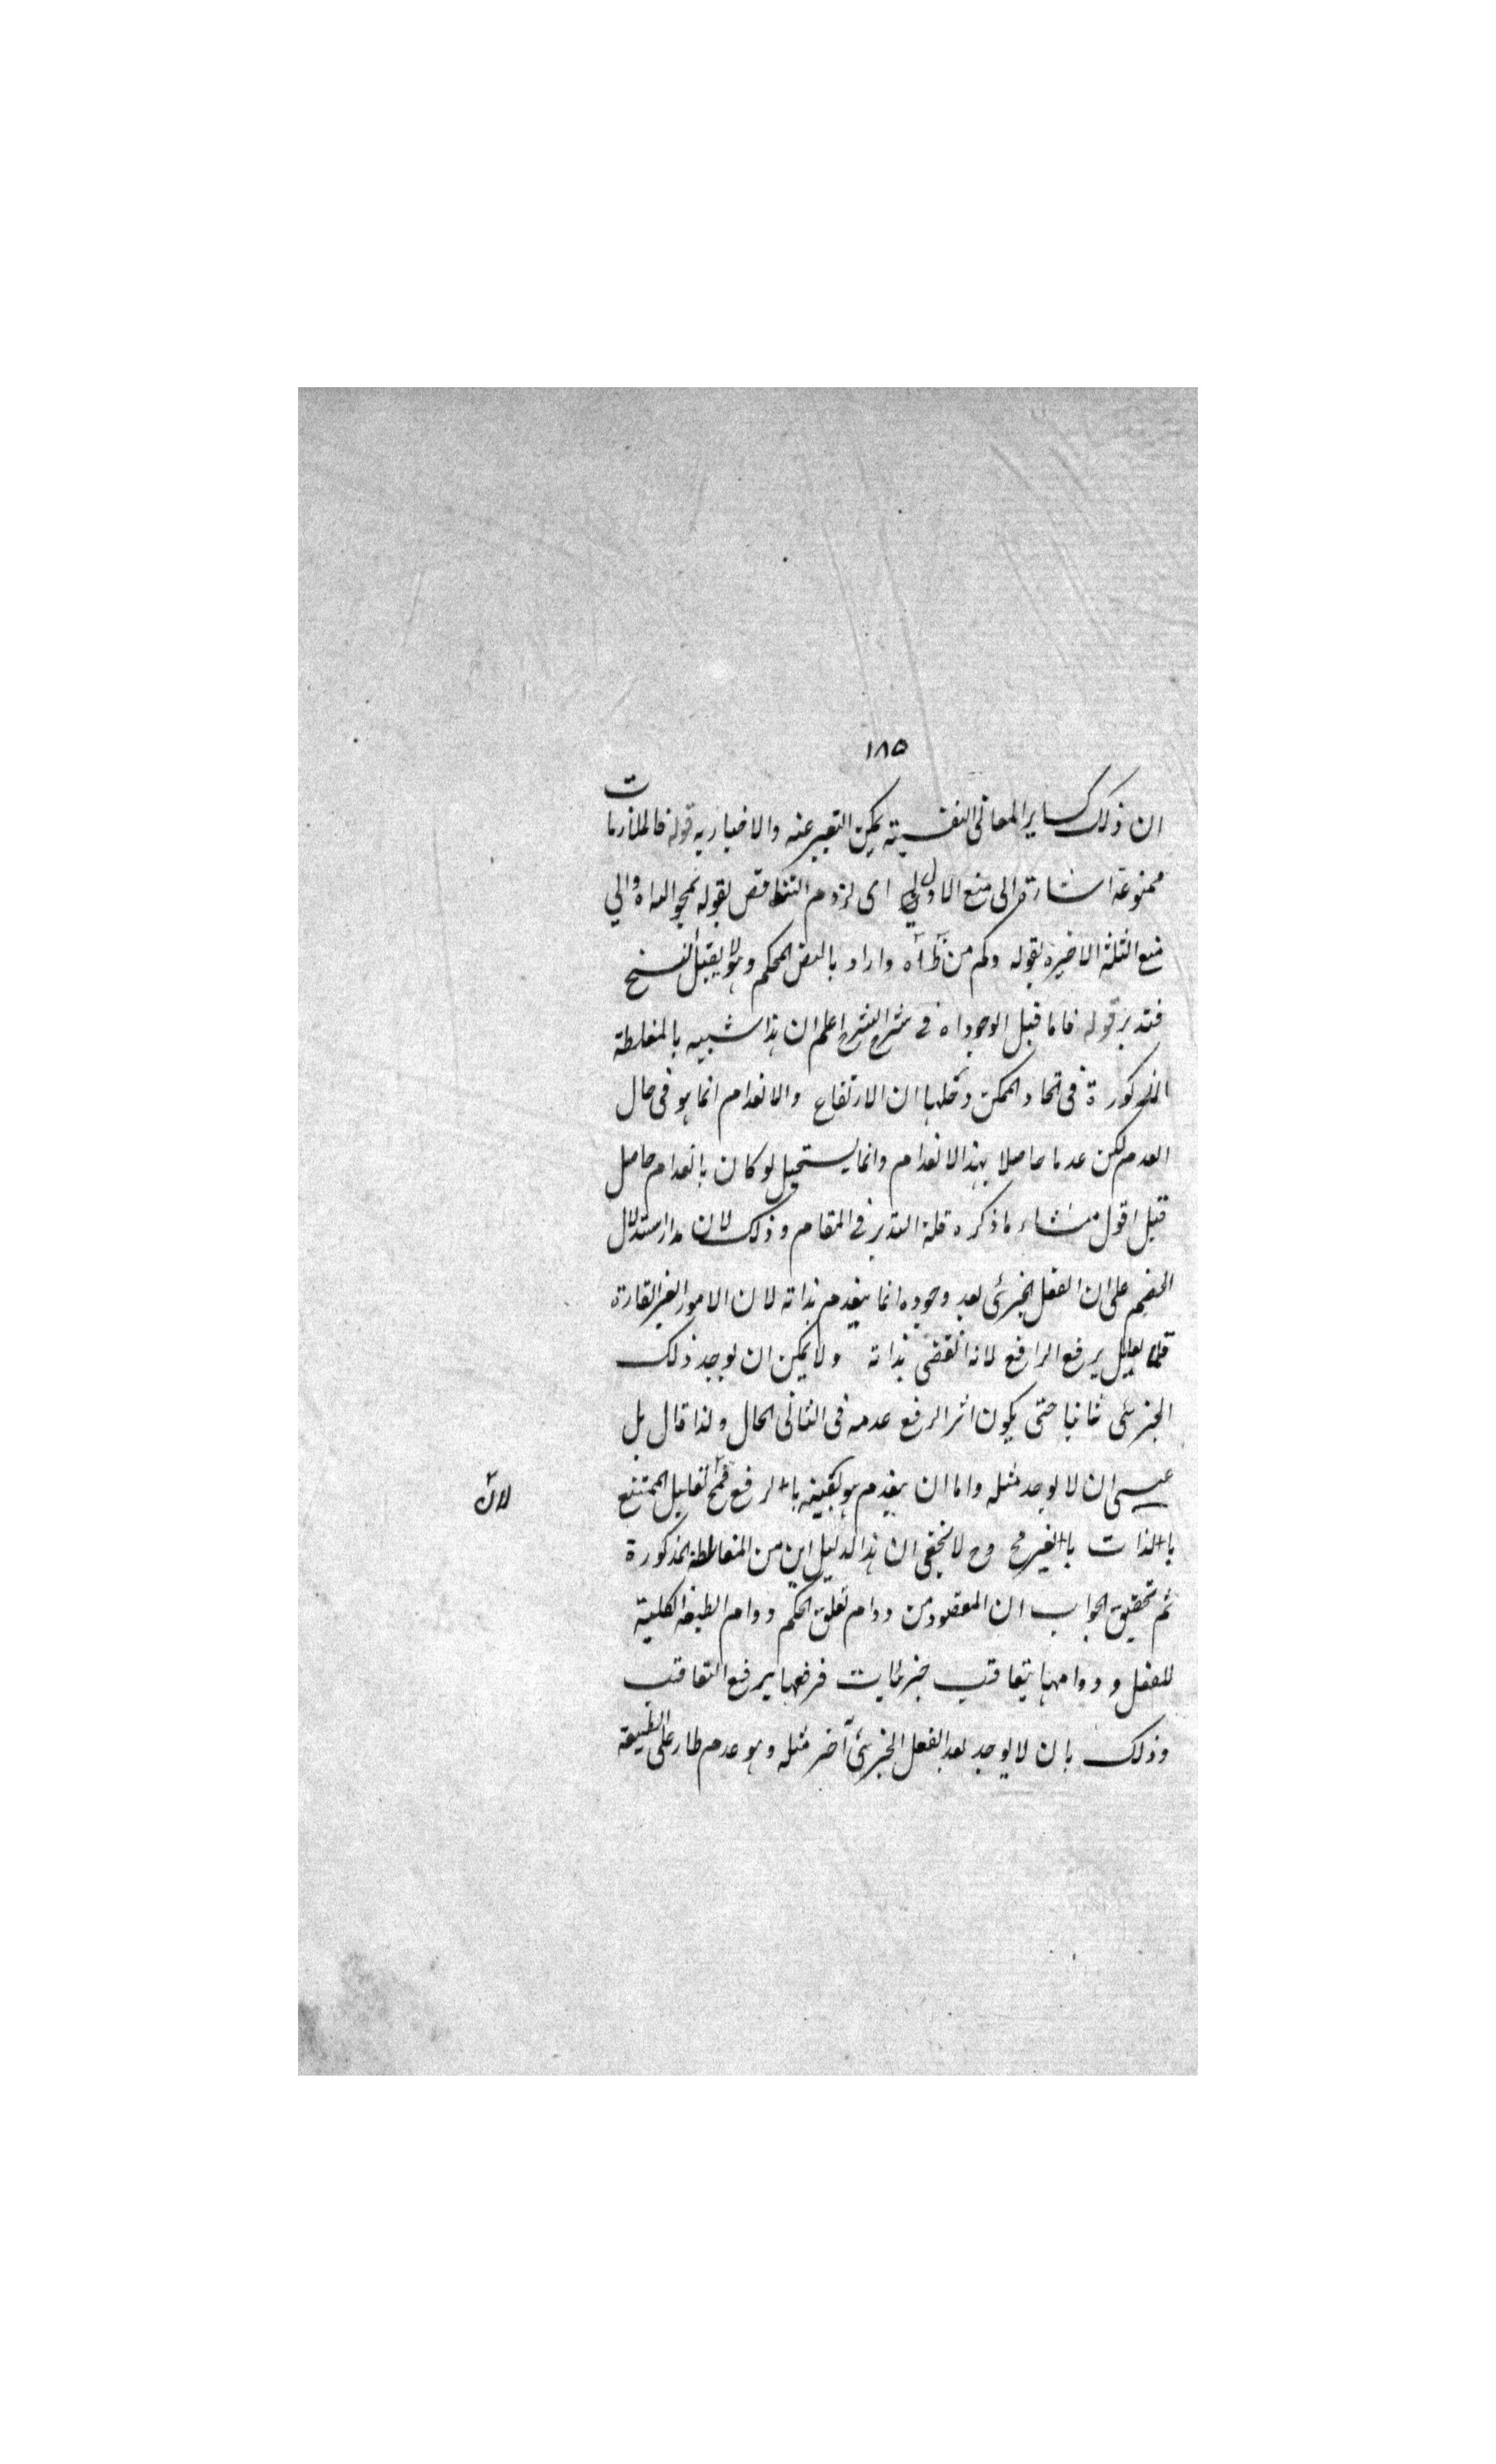 ١٨٥
ان ذلك كساير المعانى النفسية يمكن التعبير عنه والاخبار به قوله فالملازمات
ممنوعة اشارة الى منع الاولى اى لزوم التناقض بقوله والى
منع الثلثة الاخيرة بقوله وكم من واراد بالنص المحكم وهو لا يقبل النسخ
فتدبر قوله فاما قبل الوجود اه فى شرح الشرح اعلم ان هذا شبيه بالمغلطة
المذكورة فى اتحاد الممكن وحلها ان الارتفاع والانعدام انما هو فى حال
العدم لكن عدما حاصلا بهذا الانعدام وانما يستحيل لو كان بانعدام حاصل
قبل اقول منشاء ما ذكره قلة التدبر فى المقام وذلك لان مدار استدلال
الخصم على ان الفعل الجزئى بعد وجوده انما ينعدم بذاته لان الامور الغير القارة
يرفع الرافع لانه انقضى بذاته ولا يمكن ان يوجد ذلك
الجزئى ثانيا حتى يكون اثر الرفع عدمه فى الثانى الحال ولذا قال بل
عسى ان لا يوجد مثله واما ان ينعدم هو بعينه بالرفع فمح تعليل الممتنع
لان
بالذات بالغير مح وح لا يخفى ان هذا الدليل اين من المغالطة المذكورة
ثم تحقيق الجواب ان المقصود من دوام تعلق الحكم دوام الطبيعة الكلية
للفعل ودوامها بتعاقب جزئيات فرفعها يرفع التعاقب
وذلك بان لا يوجد بعد الفعل الجزئى آخر مثله وهو عدم طار على الطبيعة